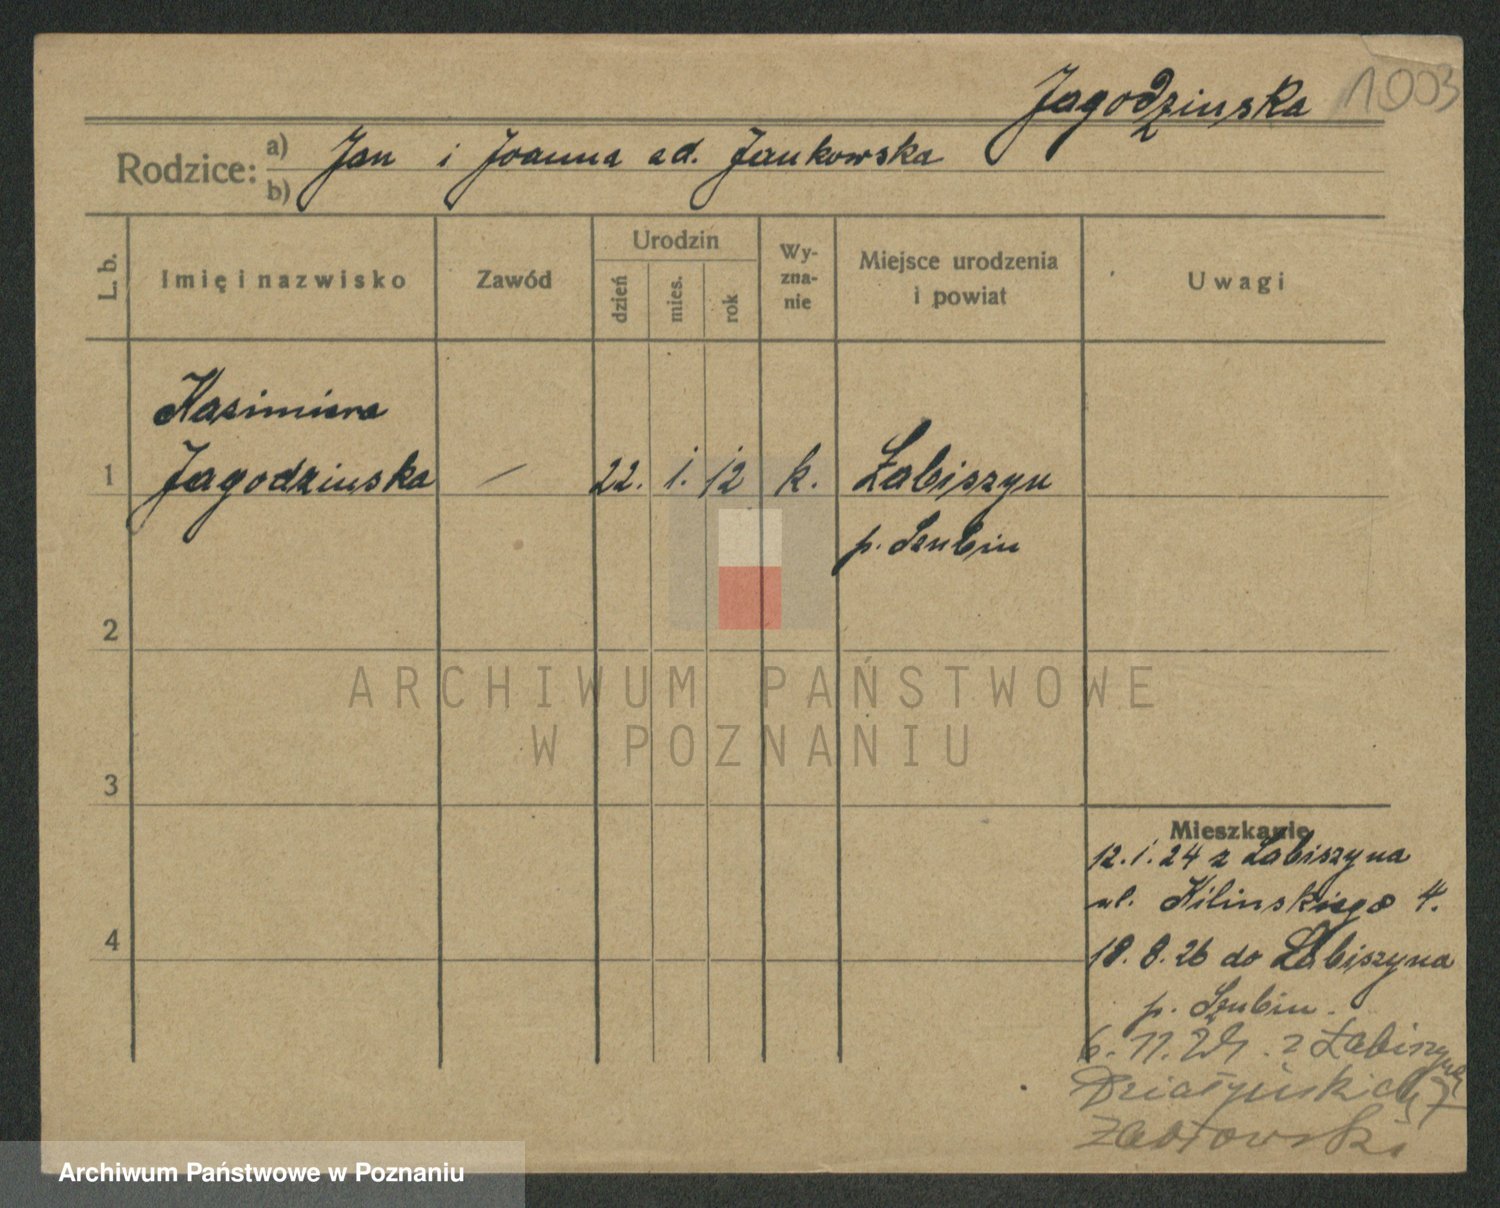 Jagodzinska 1003
Rodzice: a) Jan i Joanna ad. Jankowska
b)
L. b.
Imię i nazwisko
Zawód
Urodzin
dzień
mies.
rok
Wy-
zna-
nie
Miejsce urodzenia
i powiat
Uwagi
Kasimiera
1 Jagodzinska — 22. 1. 12 k. Łabiszyn
p. Szubin
2
ARCHIWUM PAŃSTWOWE
W POZNANIU
3
Mieszkanie
12.1.24 z Łabiszyna
ul. Kilinskiego 4.
4
18.8.26 do Łabiszyna
p. Szubin.
6.11.27. z Łabiszyna
Działyńskich 7
Archiwum Państwowe w Poznaniu